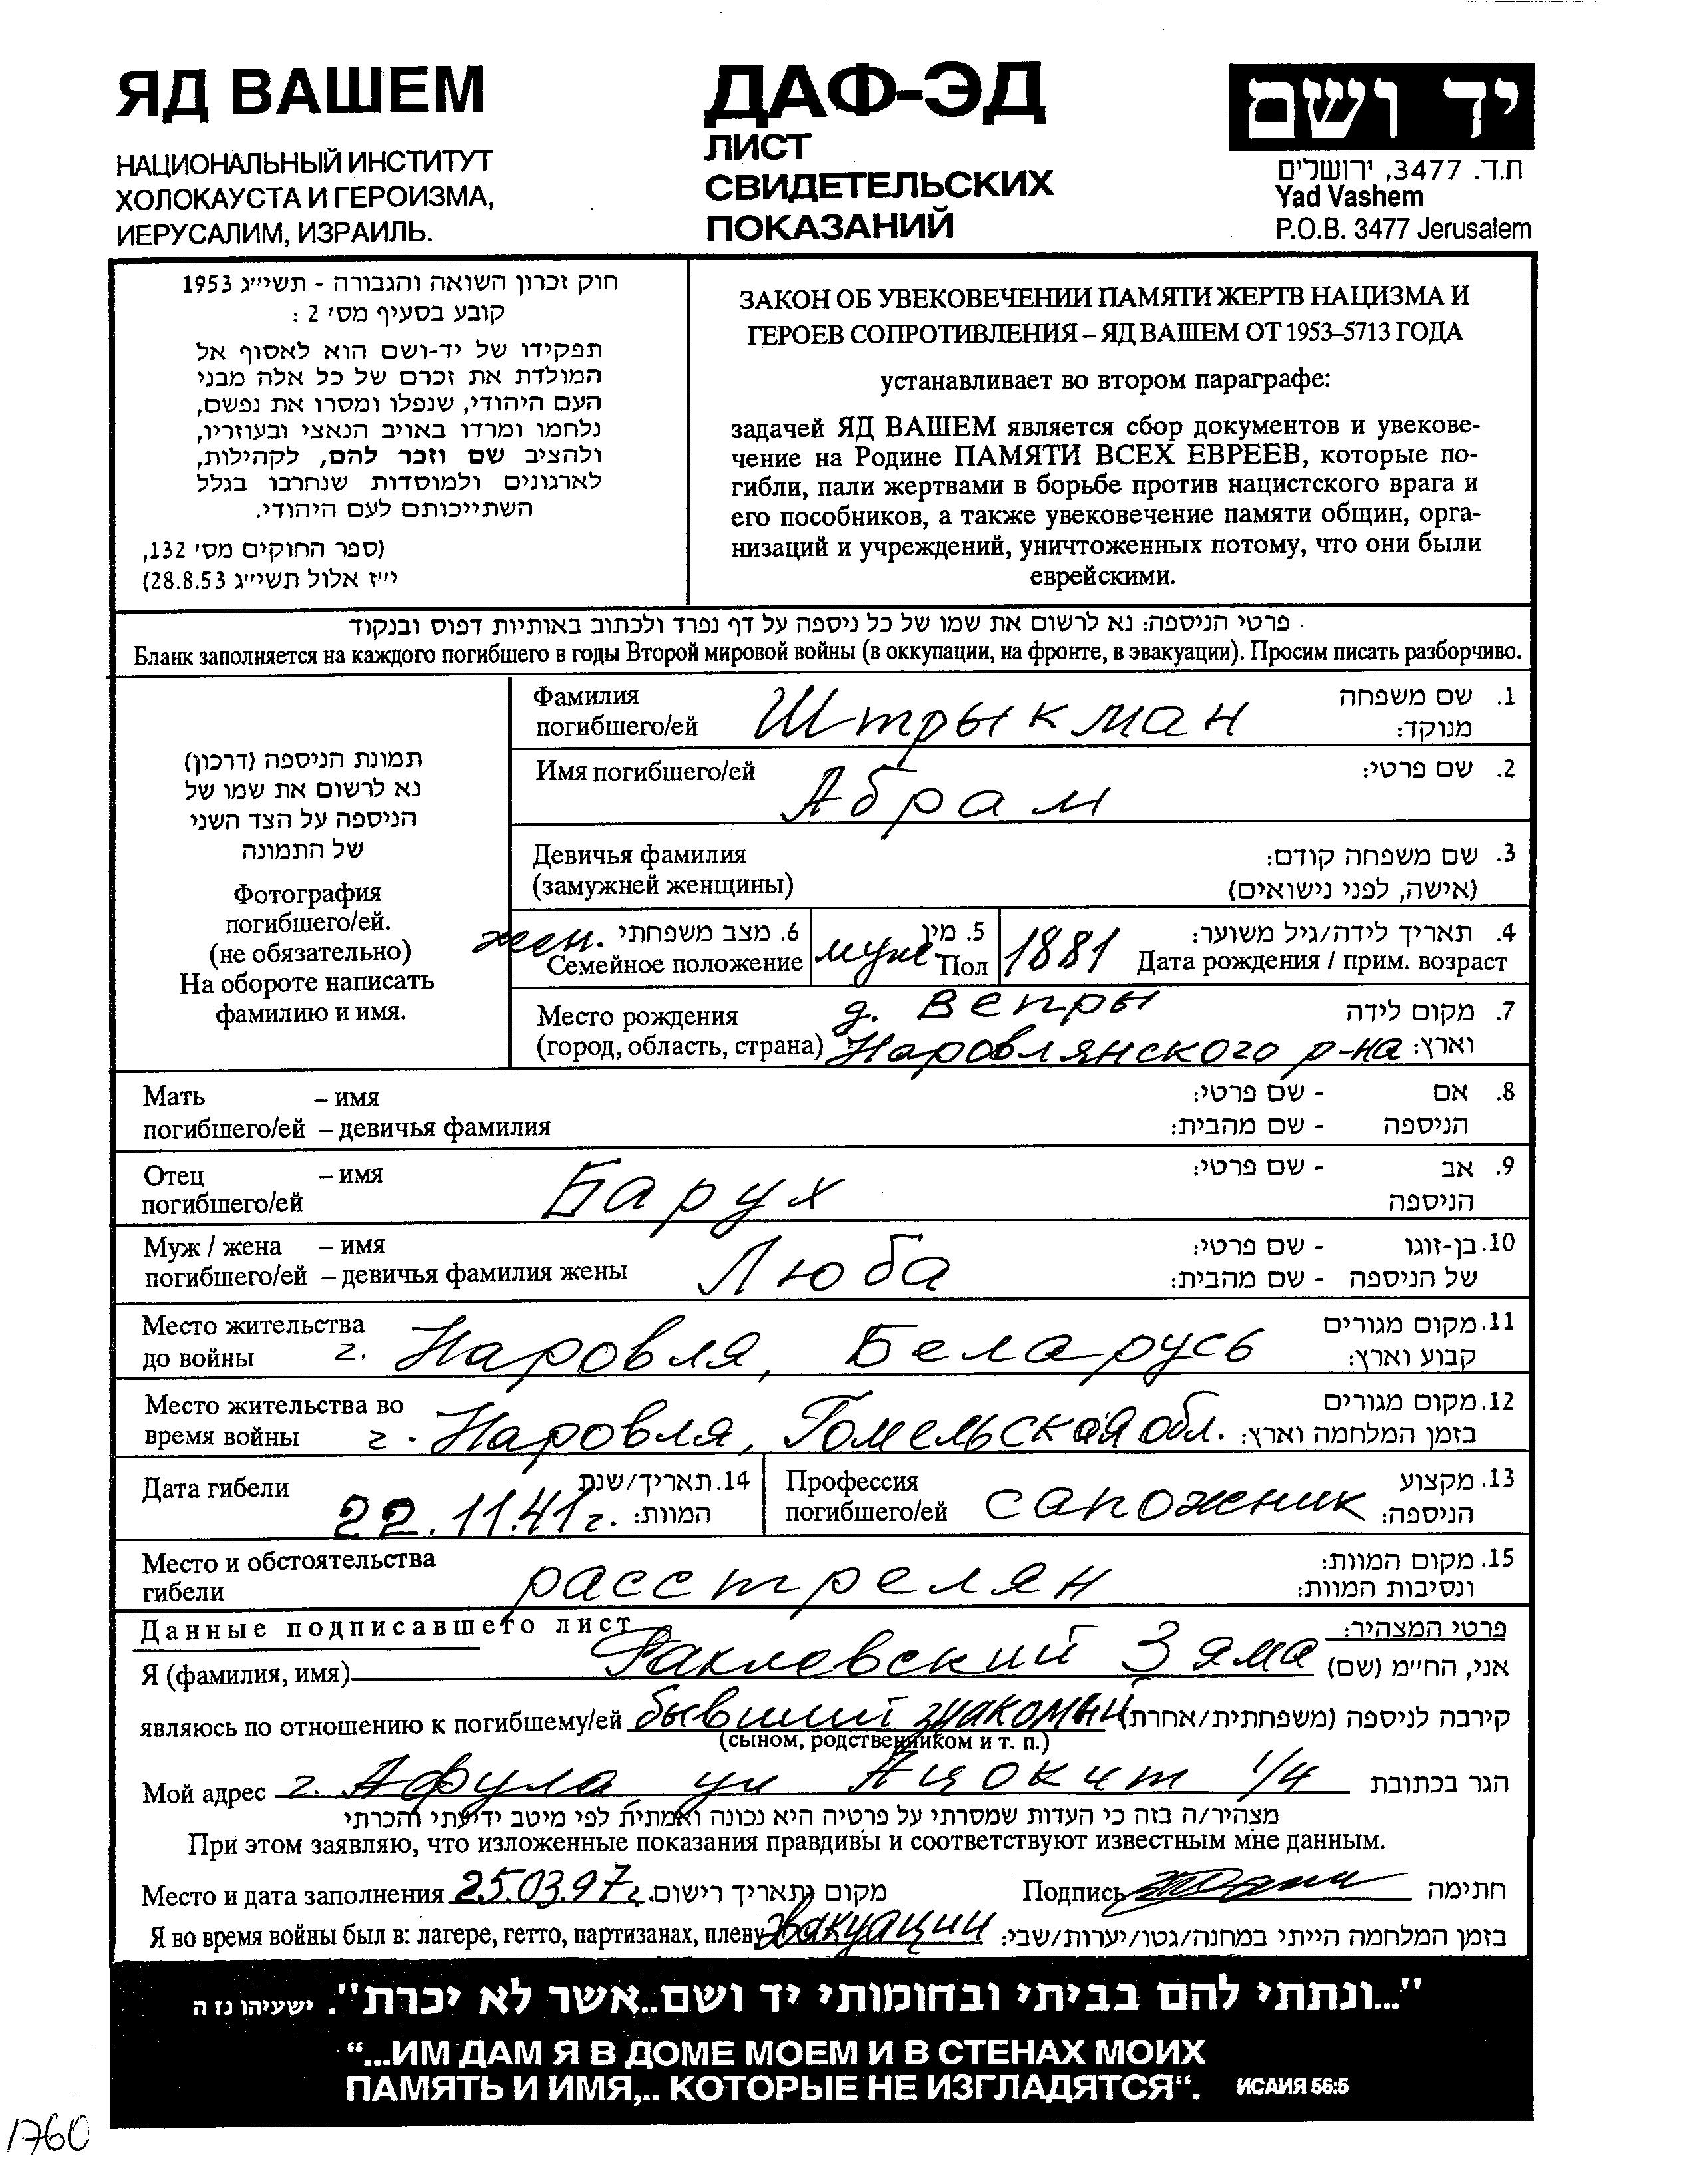 ЯД ВАШЕМ
НАЦИОНАЛЬНЫЙ ИНСТИТУТ
ХОЛОКАУСТА И ГЕРОИЗМА,
ИЕРУСАЛИМ, ИЗРАИЛЬ.
ДАФ-ЭД
ЛИСТ
СВИДЕТЕЛЬСКИХ
ПОКАЗАНИЙ
יד ושם
ת.ד. 3477, ירושלים
Yad Vashem
P.O.B. 3477 Jerusalem
חוק זכרון השואה והגבורה - תשי״ג 1953
קובע בסעיף מס׳ 2 :
תפקידו של יד-ושם הוא לאסוף אל
המולדת את זכרם של כל אלה מבני
העם היהודי, שנפלו ומסרו את נפשם,
נלחמו ומרדו באויב הנאצי ובעוזריו,
ולהציב שם וזכר להם, לקהילות,
לארגונים ולמוסדות שנחרבו בגלל
השתייכותם לעם היהודי.
(ספר החוקים מס׳ 132,
י״ז אלול תשי״ג 28.8.53)
ЗАКОН ОБ УВЕКОВЕЧЕНИИ ПАМЯТИ ЖЕРТВ НАЦИЗМА И
ГЕРОЕВ СОПРОТИВЛЕНИЯ – ЯД ВАШЕМ ОТ 1953–5713 ГОДА
устанавливает во втором параграфе:
задачей ЯД ВАШЕМ является сбор документов и увекове-
чение на Родине ПАМЯТИ ВСЕХ ЕВРЕЕВ, которые по-
гибли, пали жертвами в борьбе против нацистского врага и
его пособников, а также увековечение памяти общин, орга-
низаций и учреждений, уничтоженных потому, что они были
еврейскими.
פרטי הניספה: נא לרשום את שמו של כל ניספה על דף נפרד ולכתוב באותיות דפוס ובנקוד
Бланк заполняется на каждого погибшего в годы Второй мировой войны (в оккупации, на фронте, в эвакуации). Просим писать разборчиво.
תמונת הניספה (דרכון)
נא לרשום את שמו של
הניספה על הצד השני
של התמונה
Фотография
погибшего/ей.
(не обязательно)
На обороте написать
фамилию и имя.
Фамилия 1. שם משפחה
погибшего/ей Штрыкман מנוקד:
Имя погибшего/ей 2. שם פרטי:
Абрам
Девичья фамилия 3. שם משפחה קודם:
(замужней женщины) (אישה, לפני נישואים)
жен. 6. מצב משפחתי
Семейное положение
муж 5. מין
Пол
1881 4. תאריך לידה/גיל משוער:
Дата рождения / прим. возраст
Место рождения д. Вепры 7. מקום לידה
(город, область, страна) Наровлянского р-на וארץ:
Мать – имя 8. אם - שם פרטי:
погибшего/ей – девичья фамилия הניספה - שם מהבית:
Отец – имя Барух 9. אב - שם פרטי:
погибшего/ей הניספה
Муж / жена – имя Люба 10. בן-זוגו - שם פרטי:
погибшего/ей – девичья фамилия жены של הניספה - שם מהבית:
Место жительства 11. מקום מגורים
до войны г. Наровля, Беларусь קבוע וארץ:
Место жительства во 12. מקום מגורים
время войны г. Наровля, Гомельская обл. בזמן המלחמה וארץ:
Дата гибели 14. תאריך/שנת
22.11.41г. המוות:
Профессия 13. מקצוע
погибшего/ей сапожник הניספה:
Место и обстоятельства 15. מקום המוות:
гибели расстрелян ונסיבות המוות:
Данные подписавшего лист פרטי המצהיר:
Я (фамилия, имя) Зяма אני, הח״מ (שם)
являюсь по отношению к погибшему/ей бывший знакомый קירבה לניספה (משפחתית/אחרת)
(сыном, родственником и т. п.)
Мой адрес г. Афула ул 1/4 הגר בכתובת
מצהיר/ה בזה כי העדות שמסרתי על פרטיה היא נכונה ואמתית לפי מיטב ידיעתי והכרתי
При этом заявляю, что изложенные показания правдивы и соответствуют известным мне данным.
Место и дата заполнения 25.03.97г. מקום ותאריך רישום Подпись חתימה
Я во время войны был в: лагере, гетто, партизанах, плену эвакуации בזמן המלחמה הייתי במחנה/גטו/יערות/שבי:
"...ונתתי להם בביתי ובחומותי יד ושם..אשר לא יכרת". ישעיהו נז ה
“...ИМ ДАМ Я В ДОМЕ МОЕМ И В СТЕНАХ МОИХ
ПАМЯТЬ И ИМЯ,.. КОТОРЫЕ НЕ ИЗГЛАДЯТСЯ“. ИСАИЯ 56:5
1760